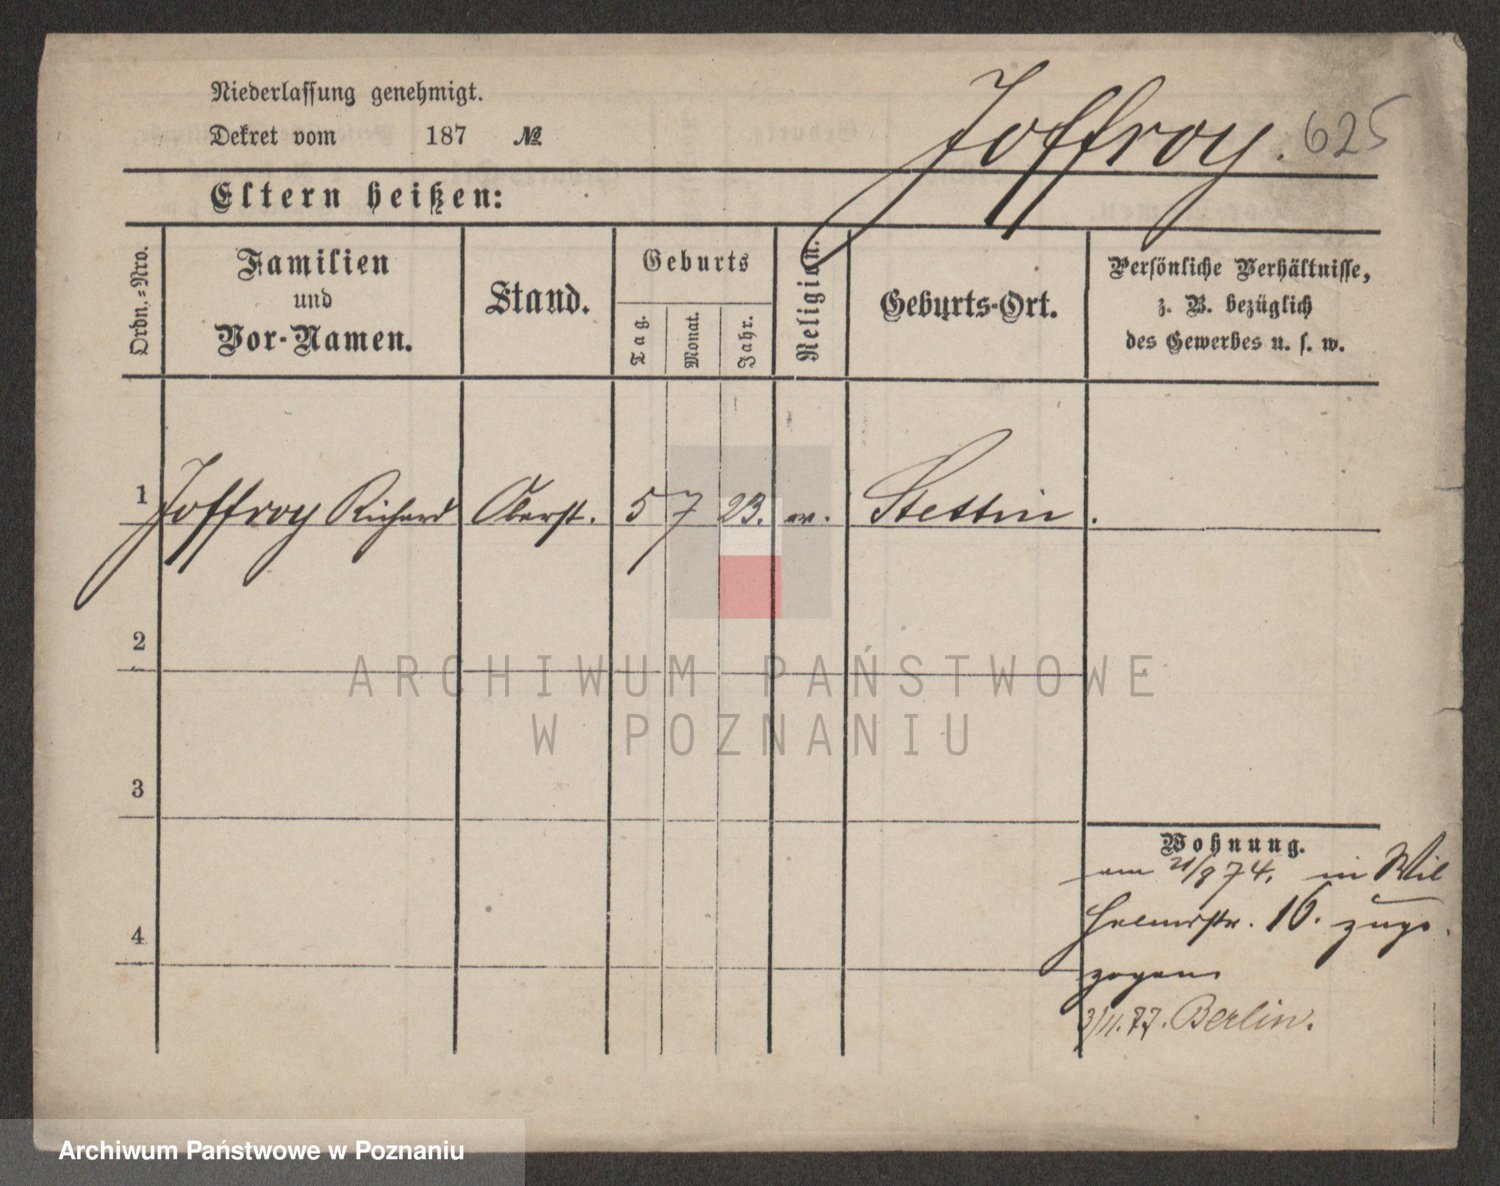 Niederlassung genehmigt.
Dekret vom 187 №
Joffroy. 625
Eltern heißen:
Ordn.-Nro.
Familien
und
Vor-Namen.
Stand.
Geburts
Tag.
Monat.
Jahr.
Religion.
Geburts-Ort.
Persönliche Verhältnisse,
z. B. bezüglich
des Gewerbes u. s. w.
1 Joffroy Richard Oberst. 5 7 23. ev. Stettin.
2
3
4
Wohnung.
am 21/9 74. in Wil
helmstr. 16. zuge
zogen
3/11.77. Berlin.
ARCHIWUM PAŃSTWOWE
W POZNANIU
Archiwum Państwowe w Poznaniu